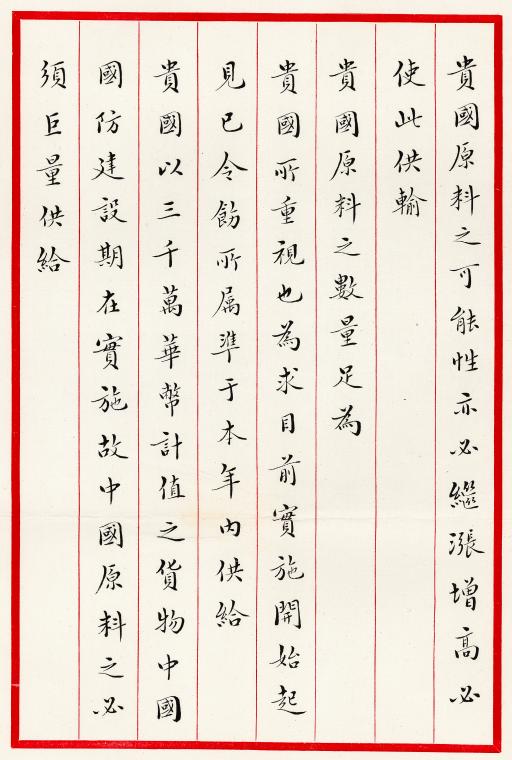 貴國原料之可能性亦必繼漲增高必
使此供輸
貴國原料之數量足為
貴國所重視也為求目前實施開始起
見已令飭所属準于本年內供給
貴國以三千萬華幣計值之貨物中國
國防建設期在實施故中國原料之必
須巨量供給